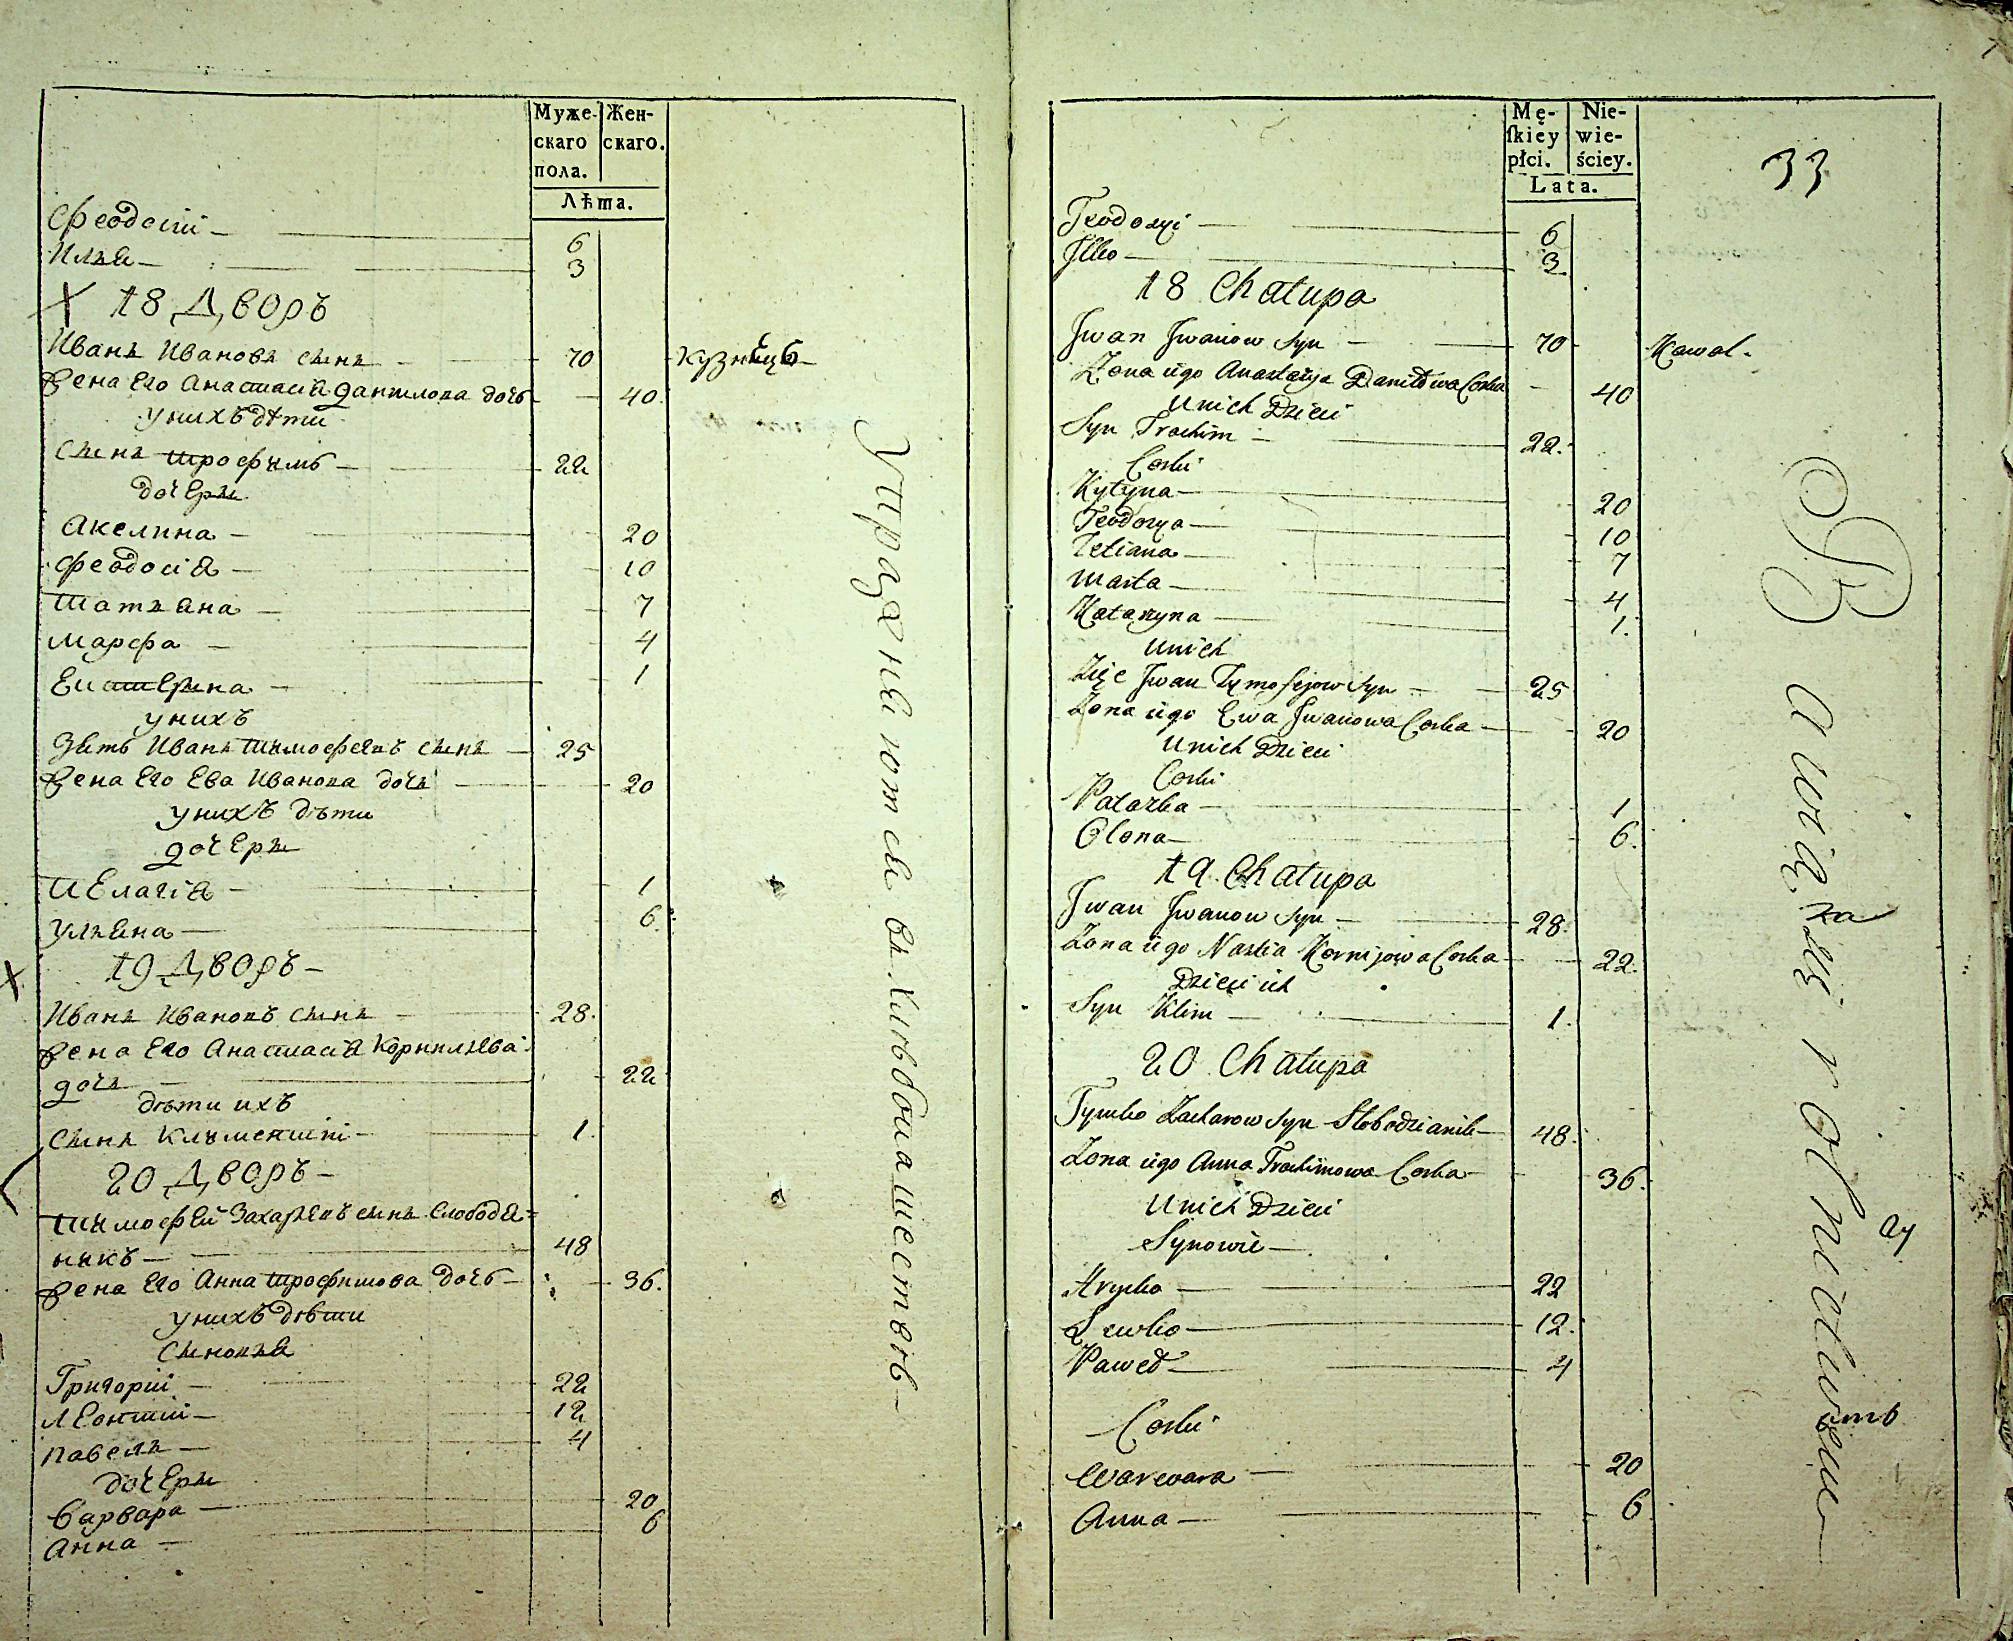 Муже-
скаго
пола.
Жен-
скаго.
Лѣта.
Феодосій — 6
Илья — 3
18 Дворъ
Иванъ Ивановъ сынъ — 70 кузнѣцъ
Жена Его Анастасія Данилова дочь — 40
у нихъ дѣти
Сынъ Трофимъ — 22
дочери
Акелина — 20
Феодосія — 10
Татьяна — 7
Марфа — 4
Екатерина — 1
у нихъ
Зять Иванъ Тимофеевъ сынъ — 25
Жена Его Ева Иванова дочь — 20
у нихъ дѣти
дочери
Пелагія — 1
Ульяна — 6
19 Дворъ —
Иванъ Ивановъ сынъ — 28.
Жена Его Анастасія Корнильева
дочь — 22
дѣти ихъ
Сынъ Климентій — 1
20 Дворъ —
Тимофей Захарьевъ сынъ Слободя=
никъ — 48
Жена Его Анна Трофимова Дочь — 36.
у нихъ дѣти
Сыновья
Григорій — 22
Леонтій — 12
Павелъ — 4
дочери
Варвара — 20
Анна — 6
Упражняются въ хлѣбопашествѣ —
33
Mę-
ſkiey
płci.
Nie-
wie-
ściey.
Lata.
Teodozyi — 6
Ilko — 3.
18 Chatupa
Jwan Jwanow Syn — 70 Kowal.
Zona iego Anastazya Daniłowa Corka — 40
U nich Dzieci
Syn Trochim — 22.
Corki
Kytyna — 20
Teodozya — 10
Tetiana — 7
Marta — 4
Katarzyna — 1.
U nich
Zięc Jwan Tymofejow Syn — 25
Zona iego Ewa Jwanowa Corka — 20
U nich Dzieci
Corki
Palazka — 1
Olona — 6.
19 Chatupa
Jwan Jwanow Syn — 28.
Zona iego Nastia Kornijowa Corka — 22.
Dzieci ich
Syn Klim — 1.
20 Chatupa
Tymko Zacharow Syn Słobodzianik — 48.
Zona iego Anna Trochimowa Corka — 36.
U nich Dzieci
Synowie —
Hryćko — 22
Lewko — 12.
Paweł — 4
Corki
Warwara — 20
Anna — 6.
Bawią się rolnictwem